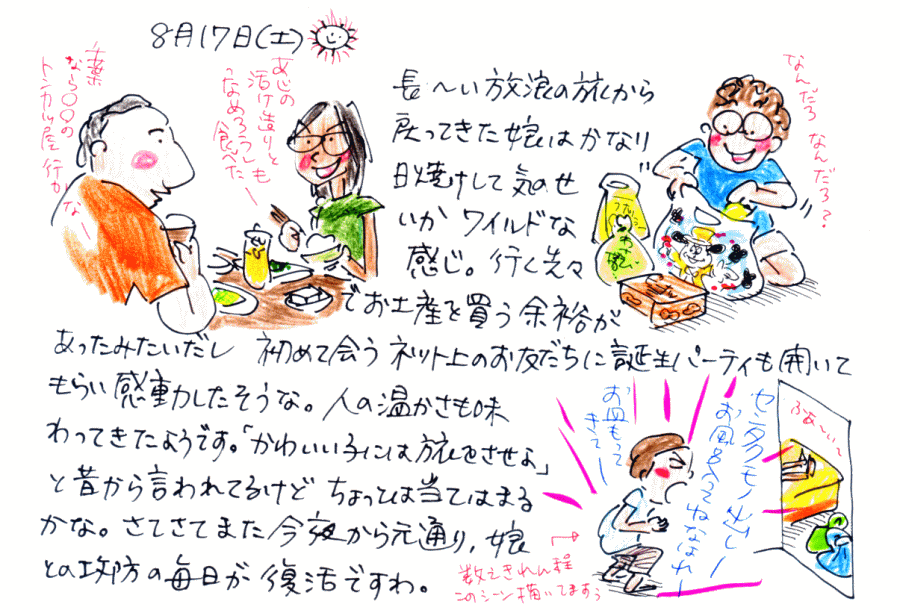 8月17日(土)
千葉
なら〇〇の
トンカツ屋 行かなー
あじの
活け造りと
"なめろう"も
食べたー
なんだろ なんだろ?
長～い 放浪の旅から
戻ってきた娘は かなり
日焼けして 気のせ
いか ワイルドな
感じ。行く先々
でお土産を買う余裕が
あったみたいだし 初めて会う ネット上のお友だちに誕生パーティも開いて
もらい感動したそうな。人の温かさも味
わってきたようです。「かわいい子には旅をさせよ」
と昔から言われてるけど ちょっとは当てはまる
かな。さてさてまた今夜から元通り、娘
との攻防の毎日が復活ですわ。
お皿もって
きてー
センタクモノ出しー
お風呂入ってねなはれー
ふあ～い
数えきれん程
このシーン描いてますぅ